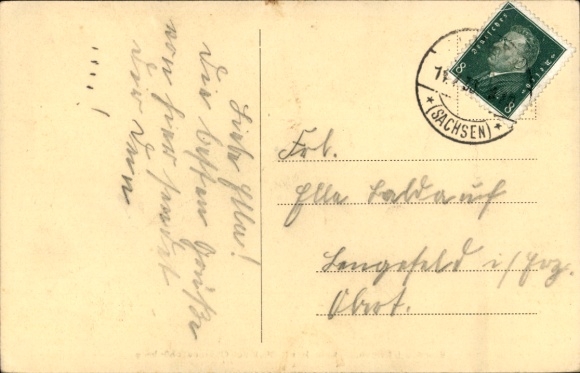 Liebe Ella!
Die besten Grüße
von hier sendet
Dir Dein
....!
Frl.
Ella Baldauf
Lengefeld i/Erzg.
Obert.
Deutsches Reich
8 8
(SACHSEN)